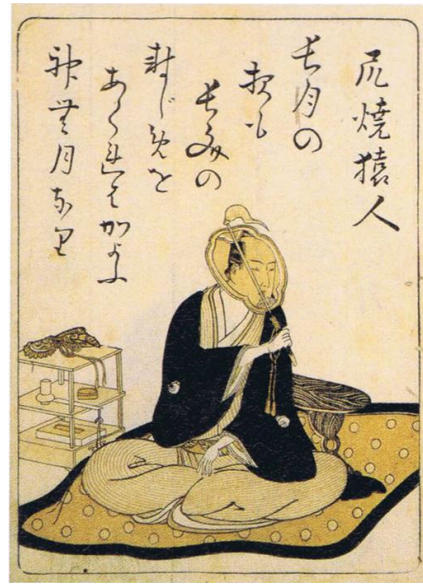 尻燒猿人
長月の
夜も
長文の
封じめを
あくればかよふ
神無月なり